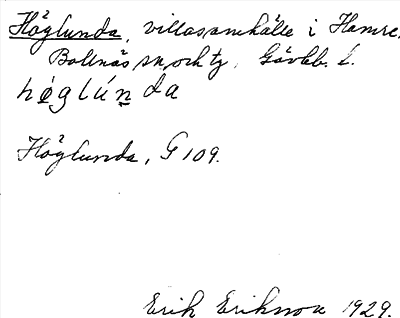 Höglunda, villasamhälle i Hamre,
Bollnäs sn, och tg, Gävleb. l.
høglúnda
Höglunda, G 109.
Erik Eriksson 1929.